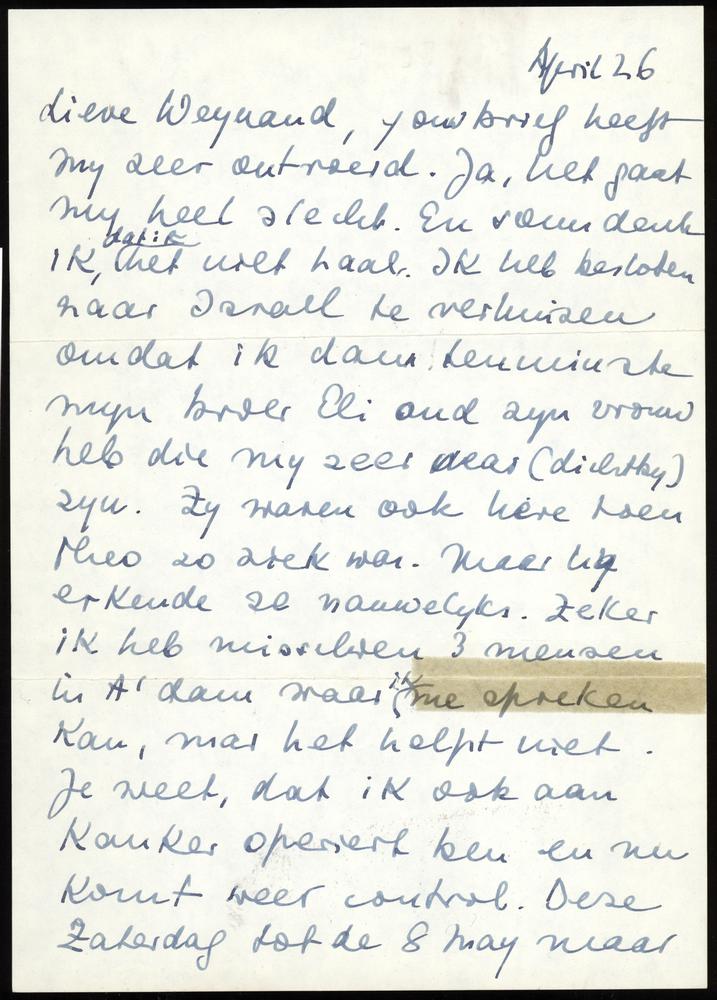 April 26
Lieve Weynand, jouw brief heeft
my zeer ontroerd. Ja, het gaat
my heel slecht. En soms denk
ik, dat ik het niet haal. Ik heb besloten
naar Israel te verhuizen
omdat ik dann tenminste
myn broer Eli and zyn vrouw
heb die my zeer dear (dichtby)
zyn. Zy waren ook here toen
Theo zo ziek war. Maar hy
erkende ze nauwelyks. Zeker
ik heb misschien 3 mensen
in A'dam waar ik me spreken
Kan, mar het helpt niet.
Je weet, dat ik ook aan
Kanker operiert ben en nu
Komt weer control. Deze
Zaterdag tot de 8 May maar